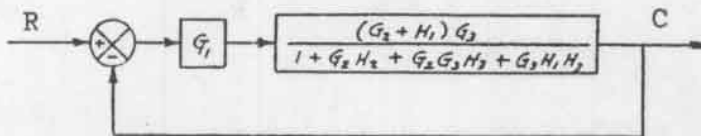 R
C
+
−
G₁
(G₂ + H₁) G₃
1 + G₂ H₂ + G₂ G₃ H₃ + G₃ H₁ H₃